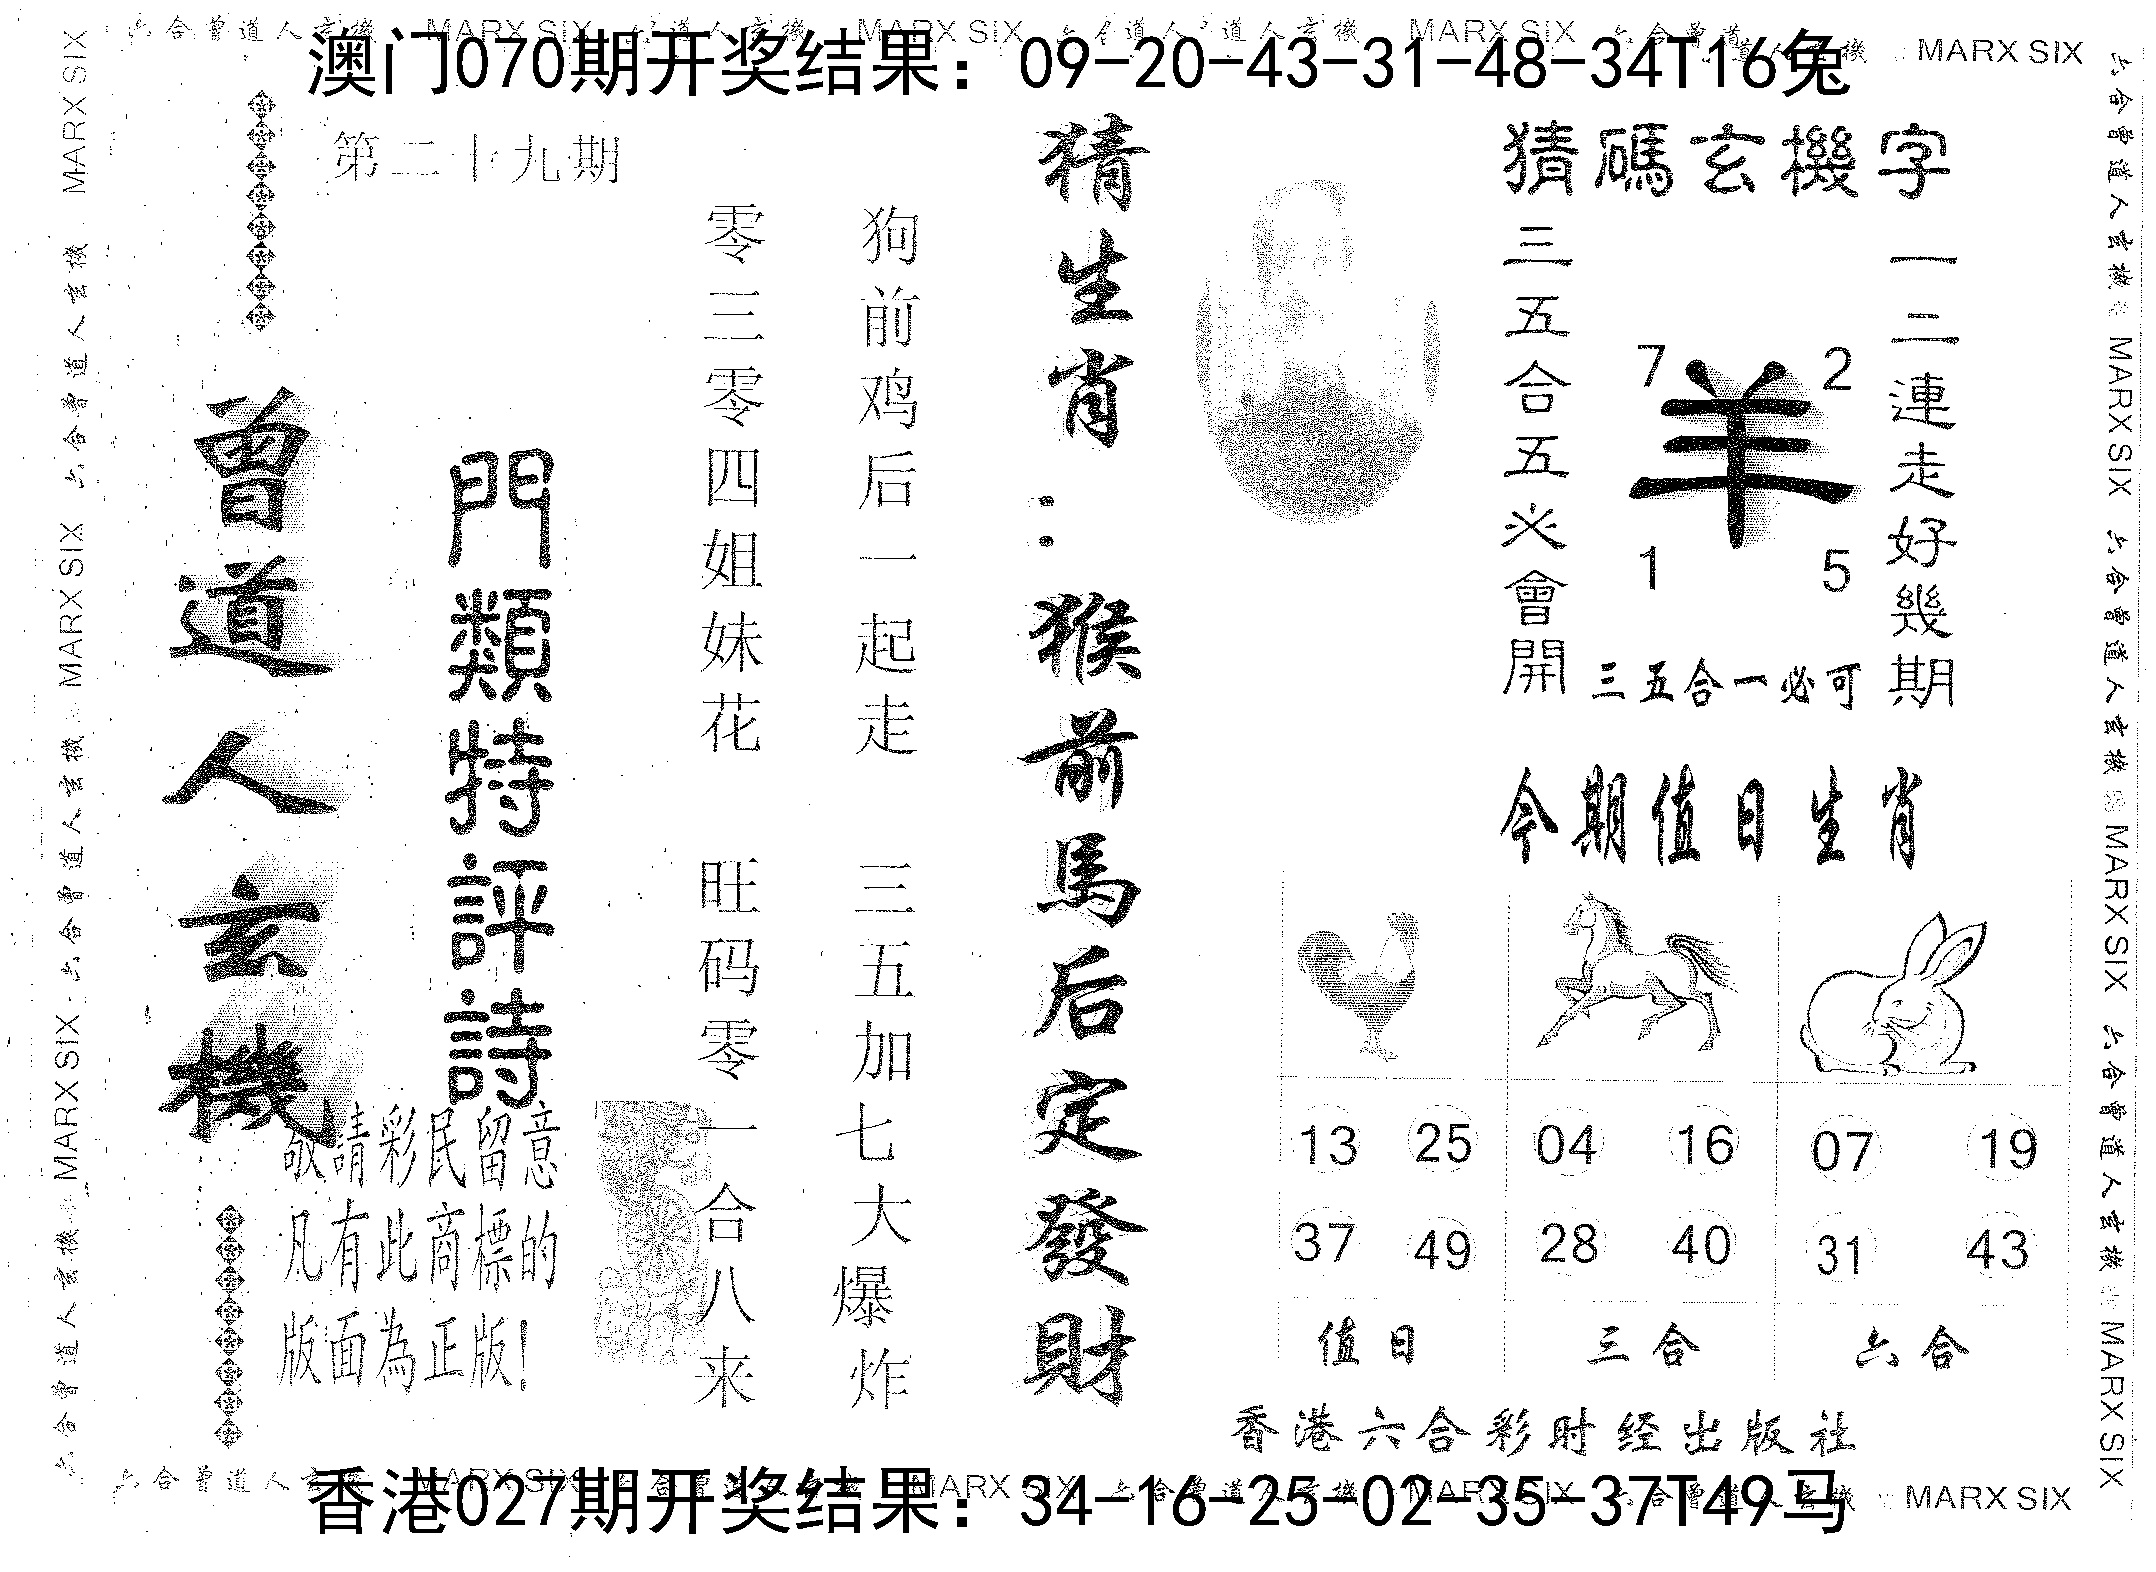 澳门070期开奖结果：09-20-43-31-48-34T16兔
MARX SIX
第二十九期
猜碼玄機字
一二連走好幾期
三五合五必會開
7 2
羊
1 5
三五合一必可
猜生肖：猴前馬后定發財
狗前鸡后一起走 三五加七大爆炸
零三零四姐妹花 旺码零一合八来
門類特評詩
曾道人玄機
敬請彩民留意
凡有此商標的
版面為正版！
今期值日生肖
13 25 04 16 07 19
37 49 28 40 31 43
值日 三合 六合
香港六合彩时经出版社
六合曾道人玄機 MARX SIX 六合曾道人玄機 MARX SIX 六合曾道人玄機 MARX SIX
香港027期开奖结果：34-16-25-02-35-37T49马
MARX SIX